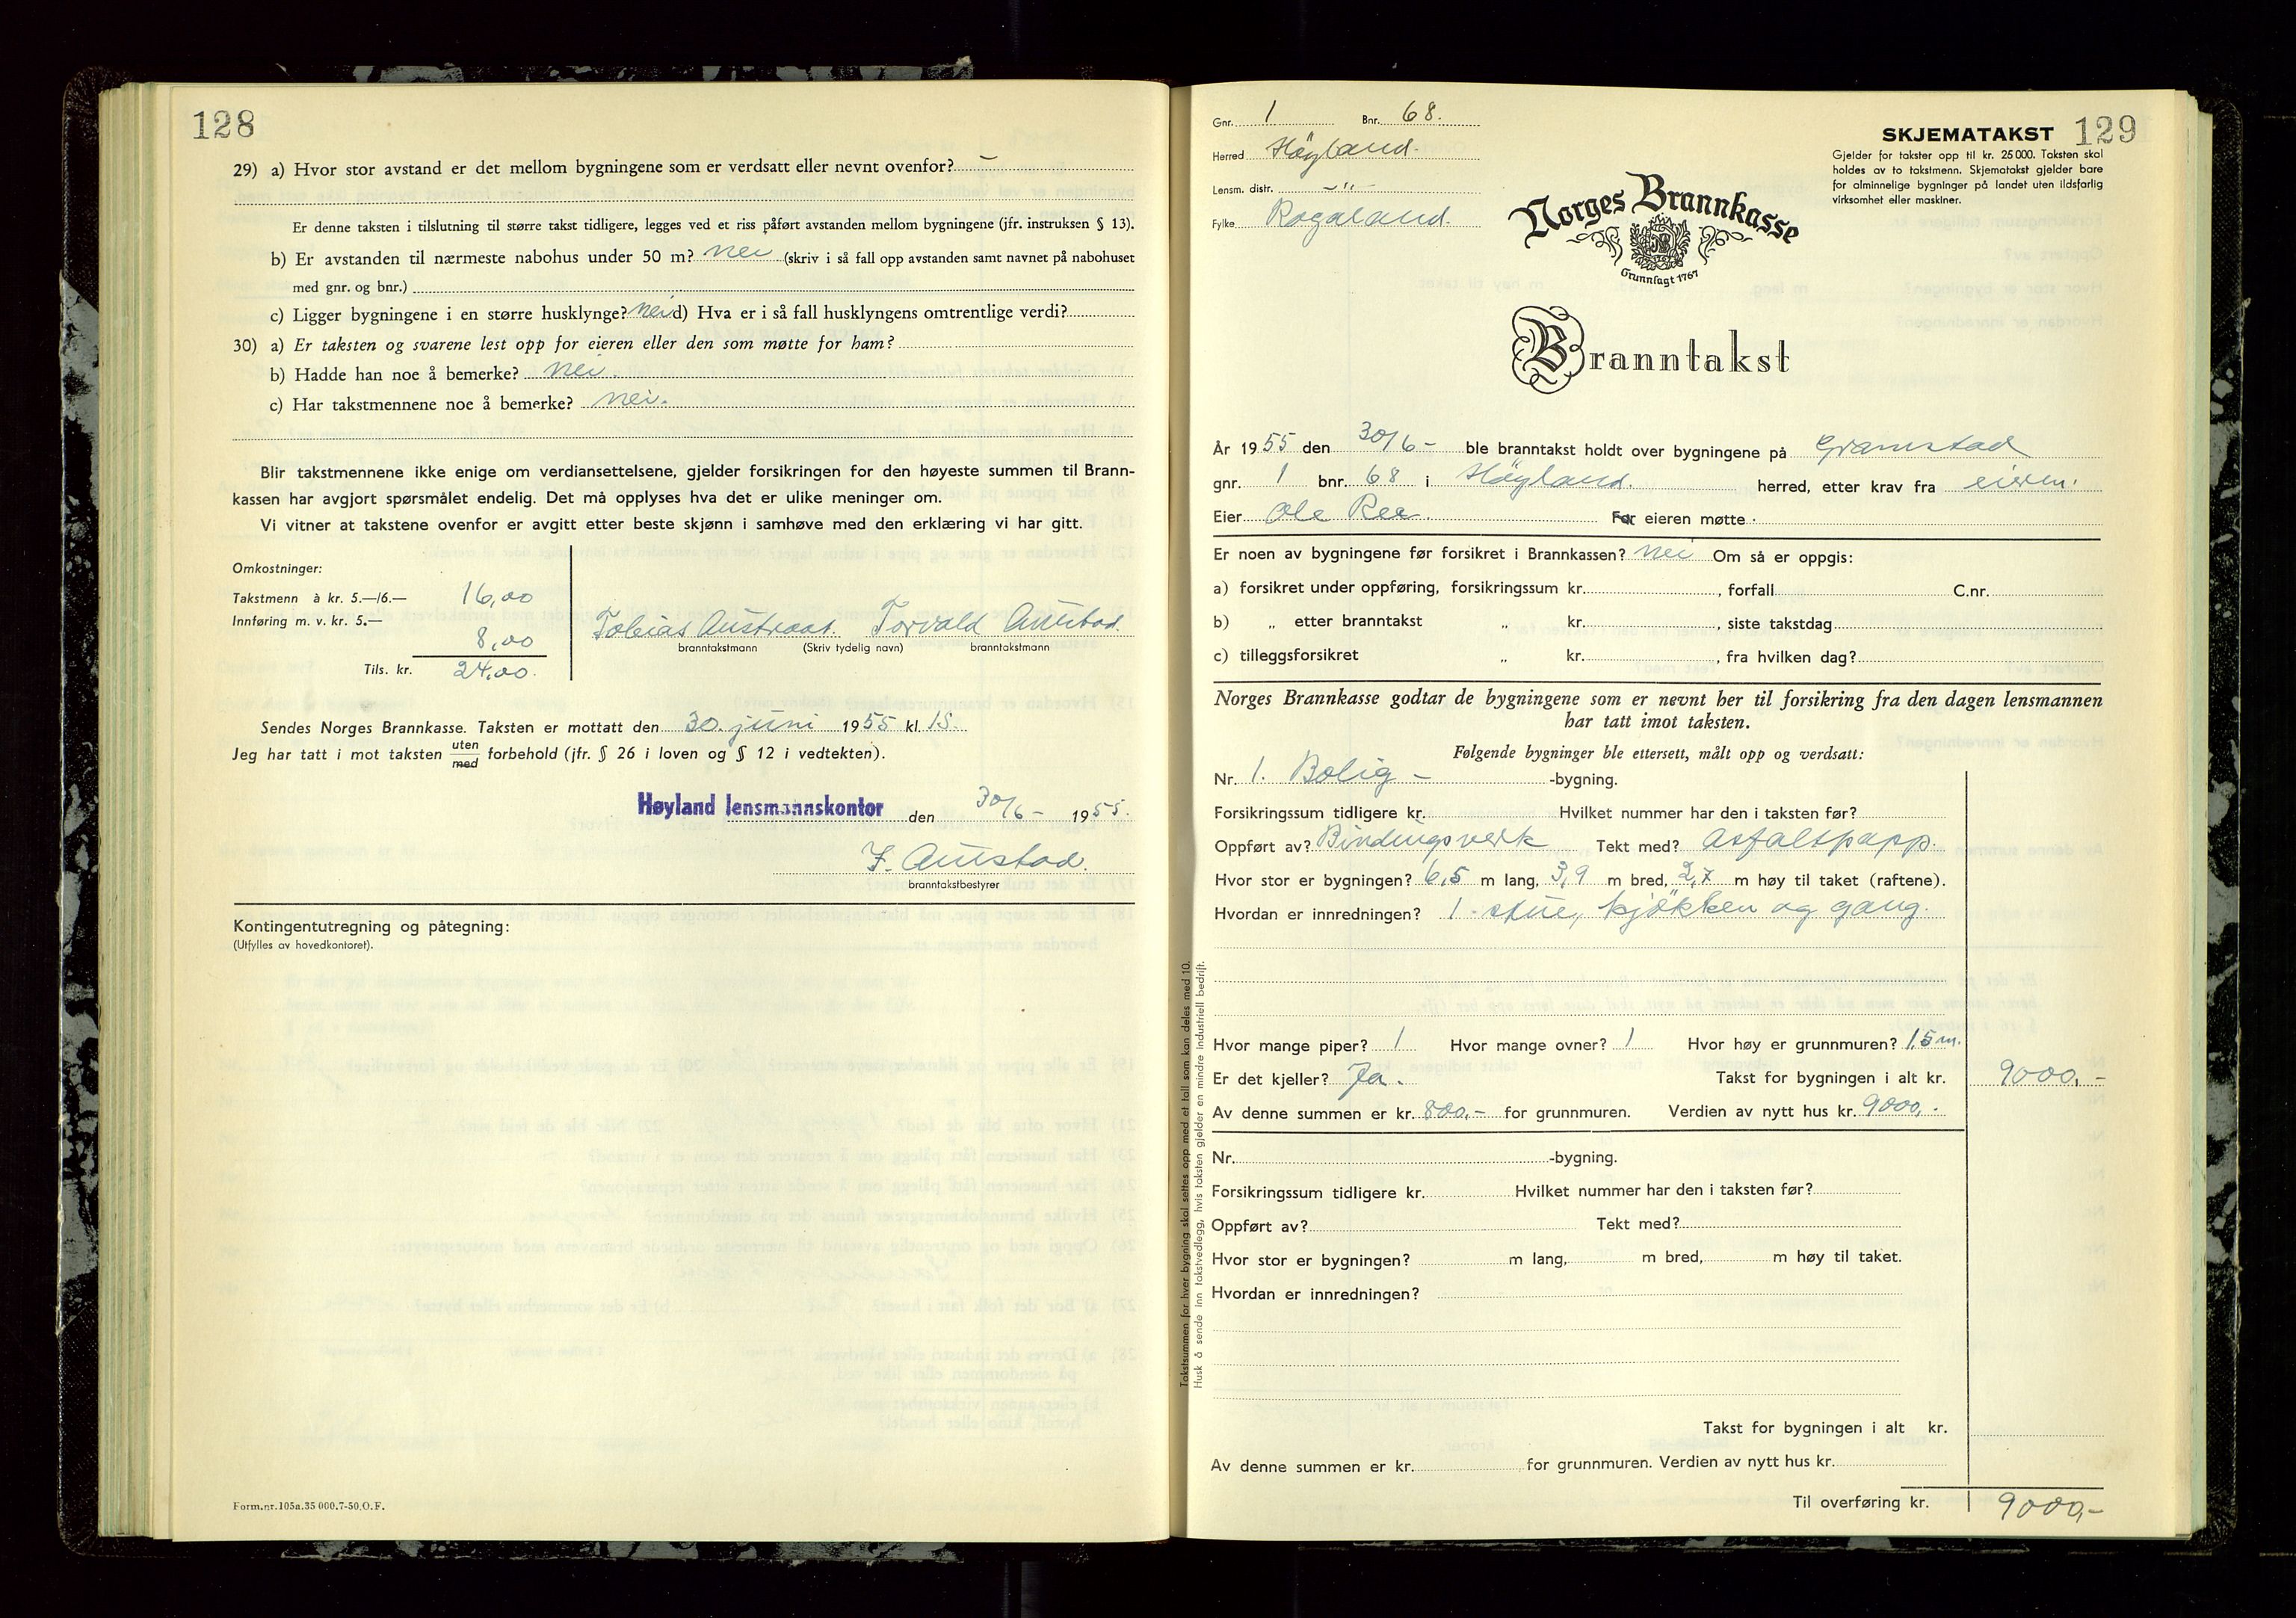 128
29) a) Hvor stor avstand er det mellom bygningene som er verdsatt eller nevnt ovenfor? –
Er denne taksten i tilslutning til større takst tidligere, legges ved et riss påført avstanden mellom bygningene (jfr. instruksen § 13).
b) Er avstanden til nærmeste nabohus under 50 m? nei (skriv i så fall opp avstanden samt navnet på nabohuset
med gnr. og bnr.)
c) Ligger bygningene i en større husklynge? nei d) Hva er i så fall husklyngens omtrentlige verdi?
30) a) Er taksten og svarene lest opp for eieren eller den som møtte for ham?
b) Hadde han noe å bemerke? nei.
c) Har takstmennene noe å bemerke? nei.
Blir takstmennene ikke enige om verdiansettelsene, gjelder forsikringen for den høyeste summen til Brann-
kassen har avgjort spørsmålet endelig. Det må opplyses hva det er ulike meninger om.
Vi vitner at takstene ovenfor er avgitt etter beste skjønn i samhøve med den erklæring vi har gitt.
Omkostninger:
Takstmenn à kr. 5.—/6.— 16,00
Innføring m. v. kr. 5.—
8,00
Tils. kr. 24,00.
Tobias Austraat. Torvald Austad.
branntakstmann (Skriv tydelig navn) branntakstmann
Sendes Norges Brannkasse. Taksten er mottatt den 30. juni 1955 kl. 15.
Jeg har tatt i mot taksten uten med forbehold (jfr. § 26 i loven og § 12 i vedtekten).
Høyland lensmannskontor den 30/6 – 1955.
T. Austad.
branntakstbestyrer
Kontingentutregning og påtegning:
(Utfylles av hovedkontoret).
Form.nr.105a.35 000.7-50.O.F.
Gnr. 1 Bnr. 68.
Herred Höyland.
Lensm. distr. –"–
Fylke Rogaland.
SKJEMATAKST 129
Gjelder for takster opp til kr. 25 000. Taksten skal
holdes av to takstmenn. Skjematakst gjelder bare
for alminnelige bygninger på landet uten ildsfarlig
virksomhet eller maskiner.
Norges Brannkasse
Grunnlagt 1767
Branntakst
År 1955 den 30/6 – ble branntakst holdt over bygningene på Gramstad
gnr. 1 bnr. 68 i Höyland. herred, etter krav fra eieren.
Eier Ole Ree. For eieren møtte
Er noen av bygningene før forsikret i Brannkassen? nei Om så er oppgis:
a) forsikret under oppføring, forsikringssum kr. , forfall C.nr.
b) „ etter branntakst „ kr. , siste takstdag
c) tilleggsforsikret „ kr. , fra hvilken dag?
Norges Brannkasse godtar de bygningene som er nevnt her til forsikring fra den dagen lensmannen
har tatt imot taksten.
Følgende bygninger ble ettersett, målt opp og verdsatt:
Nr. 1. Bolig – -bygning.
Forsikringssum tidligere kr. Hvilket nummer har den i taksten før?
Oppført av? Bindingsverk Tekt med? Asfaltpapp.
Hvor stor er bygningen? 6,5 m lang, 3,9 m bred, 2,7 m høy til taket (raftene).
Hvordan er innredningen? 1. stue, kjökken og gang.
Hvor mange piper? 1 Hvor mange ovner? 1 Hvor høy er grunnmuren? 1.5 m.
Er det kjeller? Ja. Takst for bygningen i alt kr. 9000,–
Av denne summen er kr. 800,– for grunnmuren. Verdien av nytt hus kr. 9000,-
Nr. -bygning.
Forsikringssum tidligere kr. Hvilket nummer har den i taksten før?
Oppført av? Tekt med?
Hvor stor er bygningen? m lang, m bred, m høy til taket.
Hvordan er innredningen?
Takst for bygningen i alt kr.
Av denne summen er kr. for grunnmuren. Verdien av nytt hus kr.
Til overføring kr. 9000,–
Takstsummen for hver bygning skal settes opp med et tall som kan deles med 10.
Husk å sende inn takstvedlegg, hvis taksten gjelder en mindre industriell bedrift.